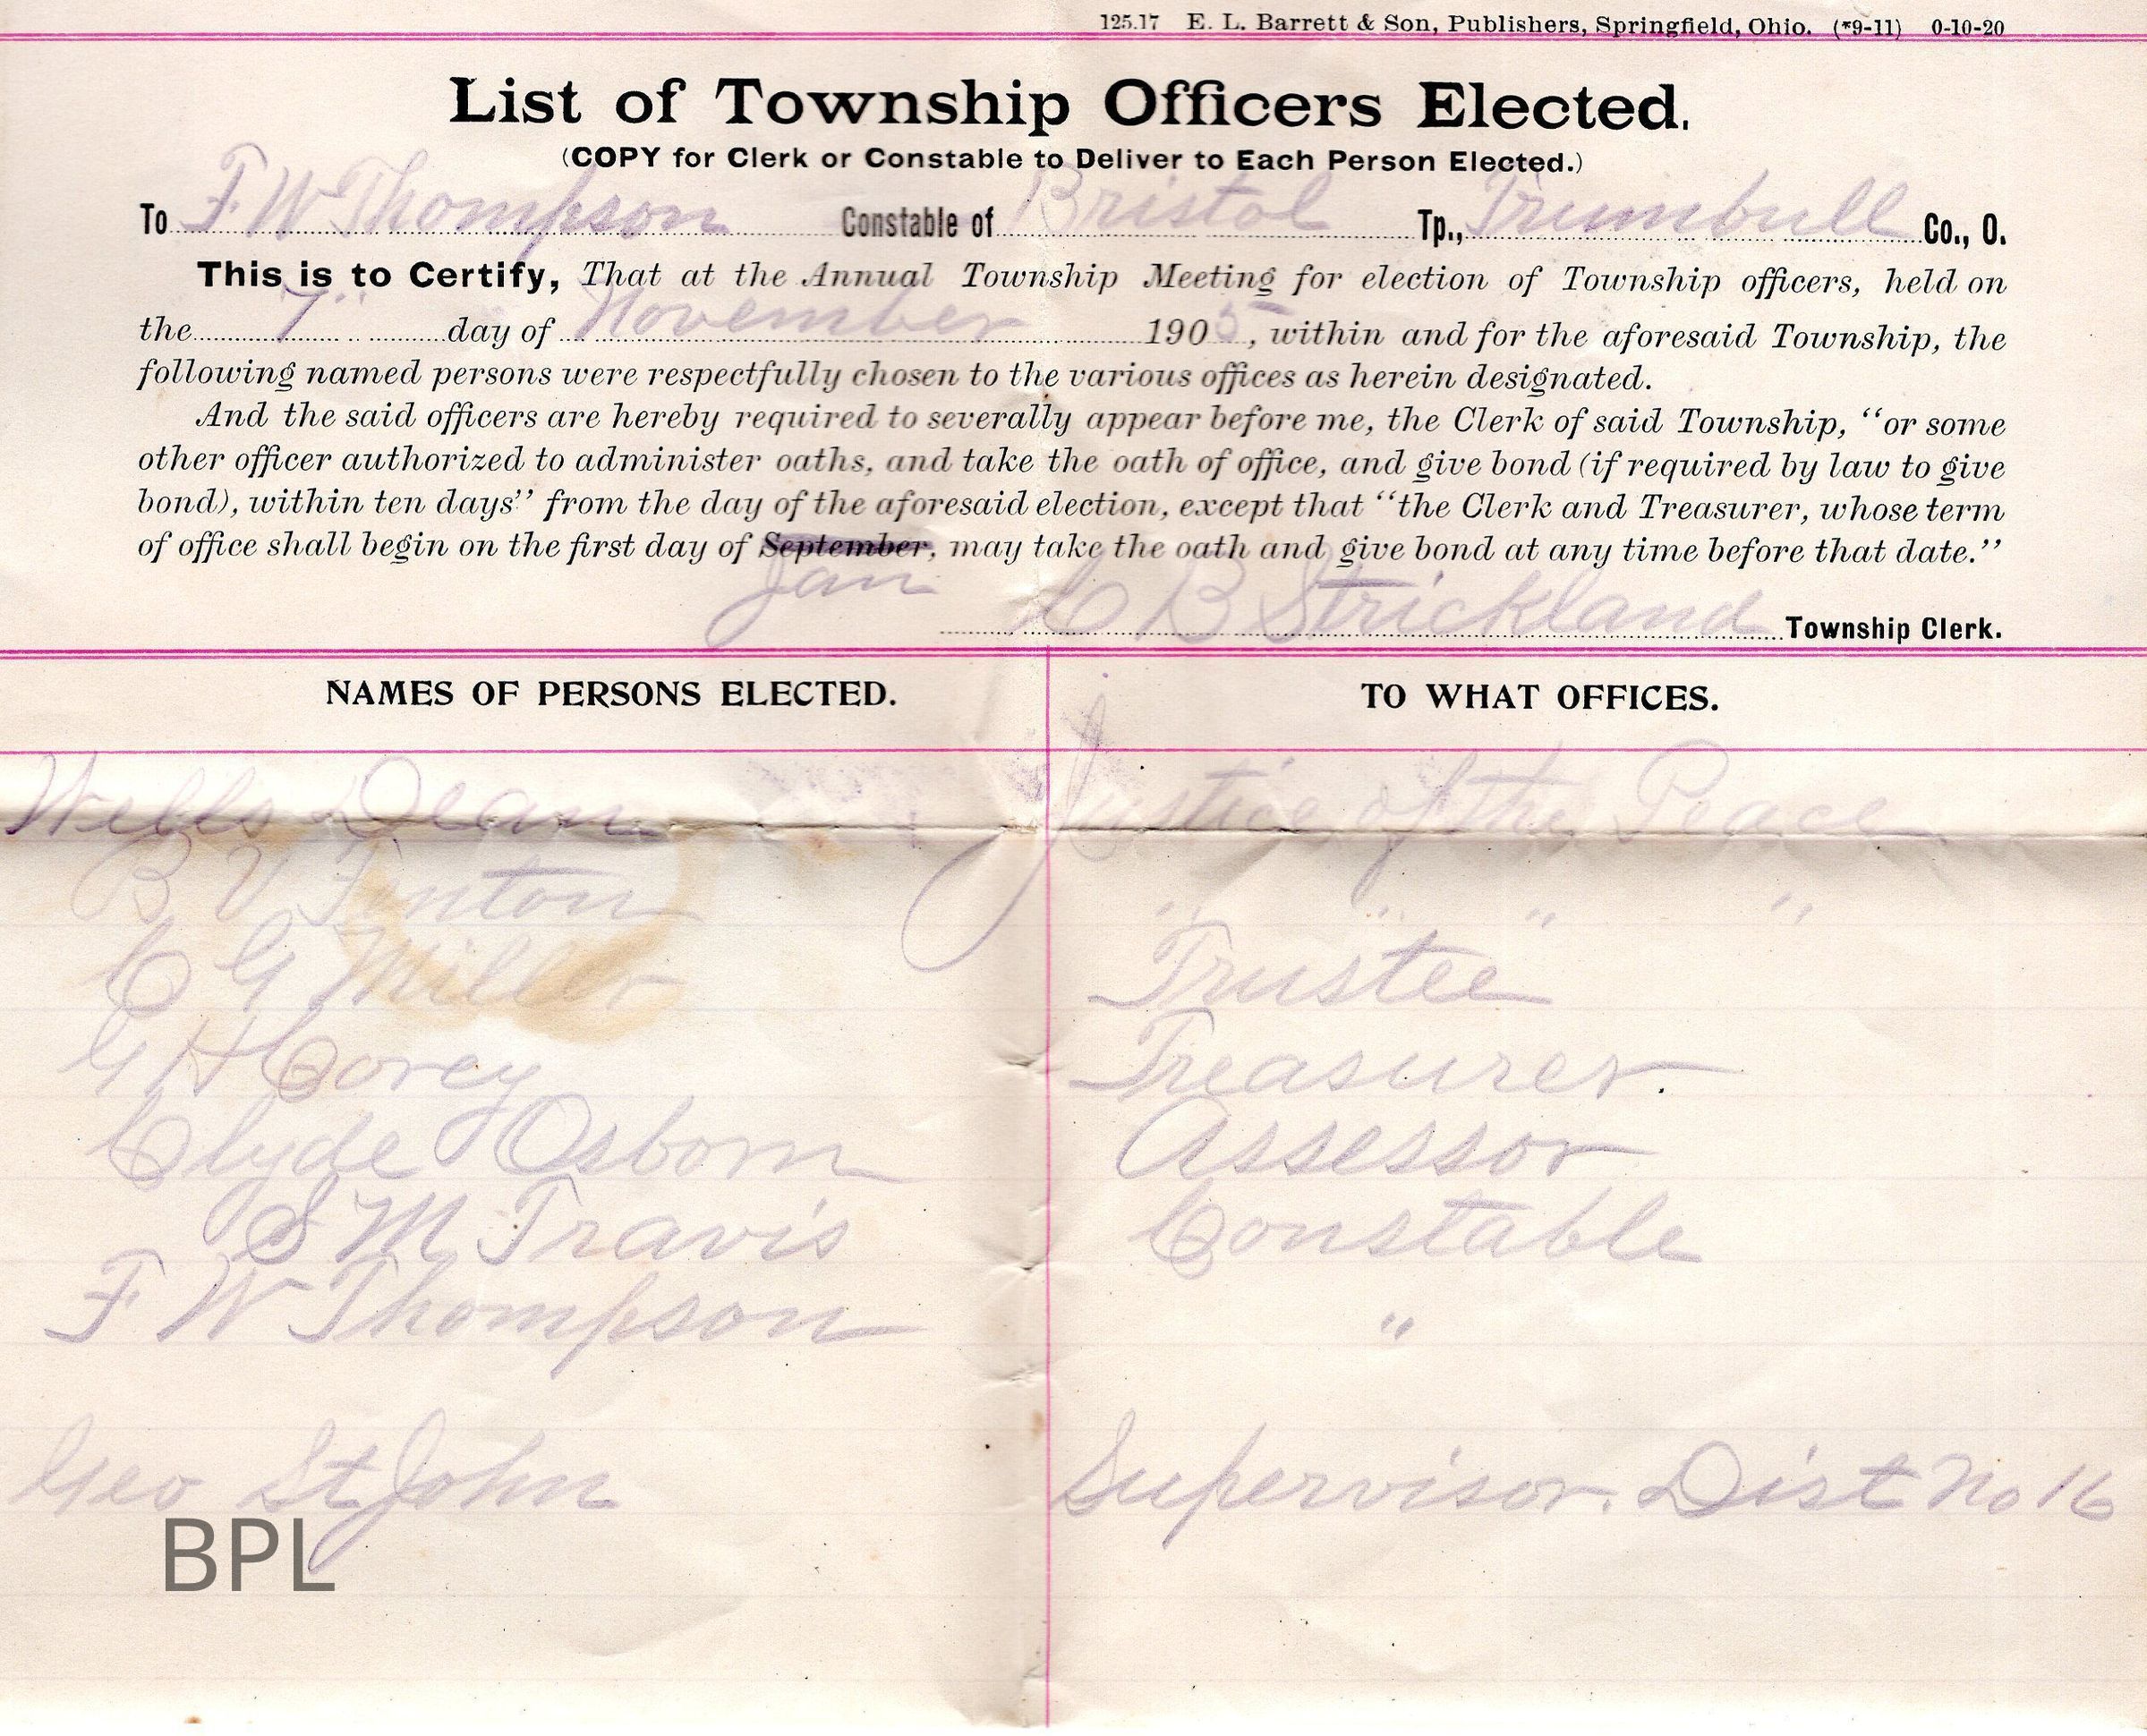 125.17 E. L. Barrett & Son, Publishers, Springfield, Ohio. (*9-11) 0-10-20
List of Township Officers Elected.
(COPY for Clerk or Constable to Deliver to Each Person Elected.)
To F W Thompson Constable of Bristol Tp., Trumbull Co., O.
This is to Certify, That at the Annual Township Meeting for election of Township officers, held on
the 7" day of November 1905, within and for the aforesaid Township, the
following named persons were respectfully chosen to the various offices as herein designated.
And the said officers are hereby required to severally appear before me, the Clerk of said Township, "or some
other officer authorized to administer oaths, and take the oath of office, and give bond (if required by law to give
bond), within ten days" from the day of the aforesaid election, except that "the Clerk and Treasurer, whose term
of office shall begin on the first day of September, may take the oath and give bond at any time before that date."
Jan
C B Strickland Township Clerk.
NAMES OF PERSONS ELECTED. TO WHAT OFFICES.
Wells Dean Justice of the Peace
B V " " " "
C G Miller Trustee
G H Corey Treasurer.
Clyde Osborn Assessor
S M Travis Constable
F W Thompson "
Geo St John Supervisor. Dist No 16
BPL